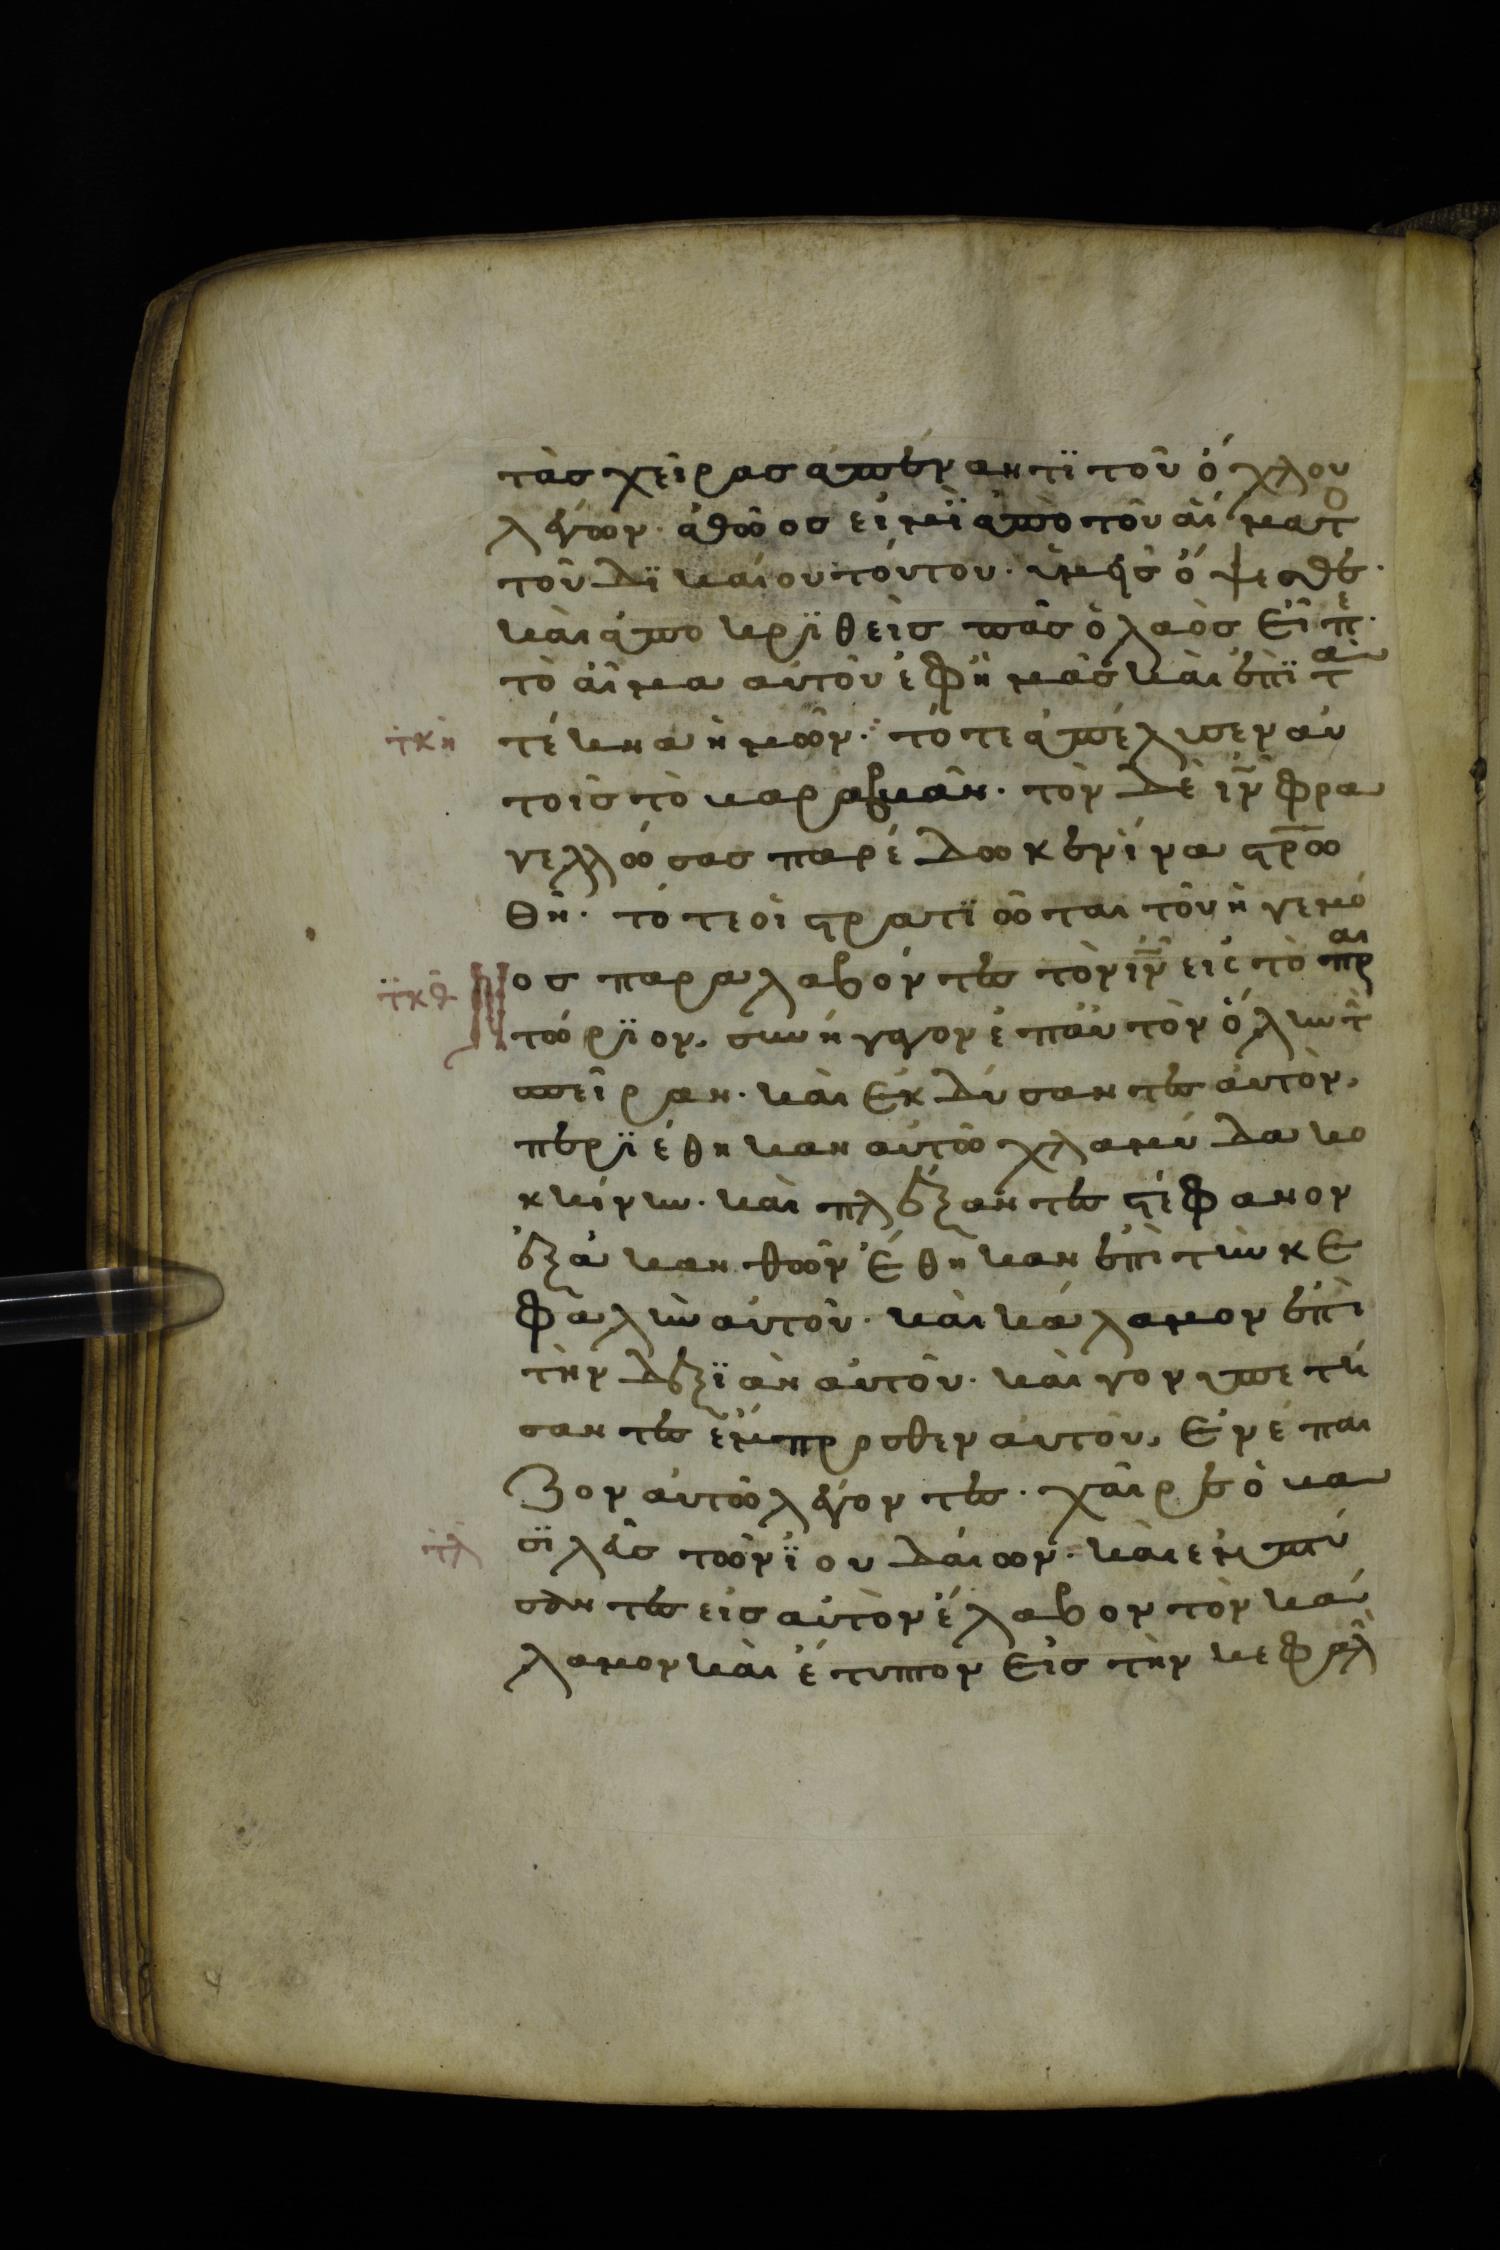 τὰσ χεῖρασ ἀπέναντϊ τοῦ ὄχλου
λέγων· ἀθῶοσ εἰμῒ ἀπὸ τοῦ αἵματο
τοῦ δϊκαίου τούτου· ὑμεῖσ ὄψεσθε·
καὶ ἀποκρϊθεὶσ πᾶσ ὁ λαὸσ εἶπε·
τὸ αἷμα αὐτοῦ ἐφ ἡμᾶσ καὶ ἐπῒ τὰ
τκη τέκνα ἡμῶν· τότε ἀπέλυσεν αὐ
τοῖσ τὸν βαραββᾶν· τὸν δὲ ιν̅ φρα
γελλώσασ παρέδωκεν ἵνα στ̅ρω
θῆ· τότε οἱ στρατϊῶται τοῦ ἡγεμό
τκθ νοσ παραλαβόντεσ τὸν ιν̅ εἰσ τὸ πραι
τώρϊον, συνήγαγον ἐπ αὐτὸν ὅλην τ
σπεῖραν· καὶ ἐκδύσαντεσ αὐτὸν,
περϊέθηκαν αὐτῶ χλαμύδα κο
κκίνην· καὶ πλέξαντεσ στέφανον
ἐξ ἀκανθῶν ἔθηκαν ἐπὶ τὴν κε
φαλὴν αὐτοῦ· καὶ κάλαμον ἐπὶ
τὴν δεξϊὰν αὐτοῦ· καὶ γονυπετή
σαντεσ ἔμπροσθεν αὐτοῦ, ἐνέπαι
ζον αὐτῶ λέγοντεσ· χαῖρε ὁ βα
τλ σϊλεὺσ τῶν ϊουδαίων· καὶ ἐμπτύ
σαντεσ εἰσ αὐτὸν ἔλαβον τὸν κά
λαμον καὶ ἔτυπτον εἰσ τὴν κεφαλ